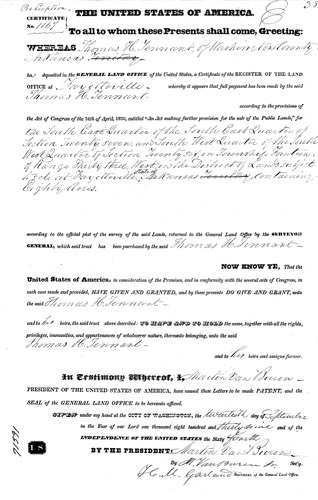 Pre Emption
38
CERTIFICATE
No. 1167
THE UNITED STATES OF AMERICA.
To all to whom these Presents shall come, Greeting:
WHEREAS Thomas H. Tennant, of Washington County
Arkansas Territory
has deposited in the GENERAL LAND OFFICE of the United States, a Certificate of the REGISTER OF THE LAND
OFFICE at Fayetteville whereby it appears that full payment has been made by the said
Thomas H. Tennant
according to the provisions of
the Act of Congress of the 24th of April, 1820, entitled "An Act making further provision for the sale of the Public Lands," for
the South East Quarter of the South East Quarter of
Section Twenty seven, and South West Quarter of the South
West Quarter of Section Twenty six, in Township
of Range Thirty three, West in the District of Lands subject
to sale at Fayetteville State of Arkansas Territory, containing
Eighty Acres.
according to the official plat of the survey of the said Lands, returned to the General Land Office by the SURVEYOR
GENERAL, which said tract has been purchased by the said Thomas H. Tennant
NOW KNOW YE, That the
United States of America, in consideration of the Premises, and in conformity with the several acts of Congress, in
such case made and provided, HAVE GIVEN AND GRANTED, and by these presents DO GIVE AND GRANT, unto
the said Thomas H. Tennant
and to his heirs, the said tract above described: TO HAVE AND TO HOLD the same, together with all the rights,
privileges, immunities, and appurtenances of whatsoever nature, thereunto belonging, unto the said
Thomas H. Tennant
and to his heirs and assigns forever.
In Testimony Whereof, I, Martin Van Buren
PRESIDENT OF THE UNITED STATES OF AMERICA, have caused these Letters to be made PATENT, and the
SEAL of the GENERAL LAND OFFICE to be hereunto affixed.
GIVEN under my hand at the CITY OF WASHINGTON, the twentieth day of September
in the Year of our Lord one thousand eight hundred and thirty nine and of the
INDEPENDENCE OF THE UNITED STATES the Sixty fourth
BY THE PRESIDENT: Martin Van Buren
By M. Van Buren Jr. Sec'y.
H. M. Garland Recorder of the General Land Office.